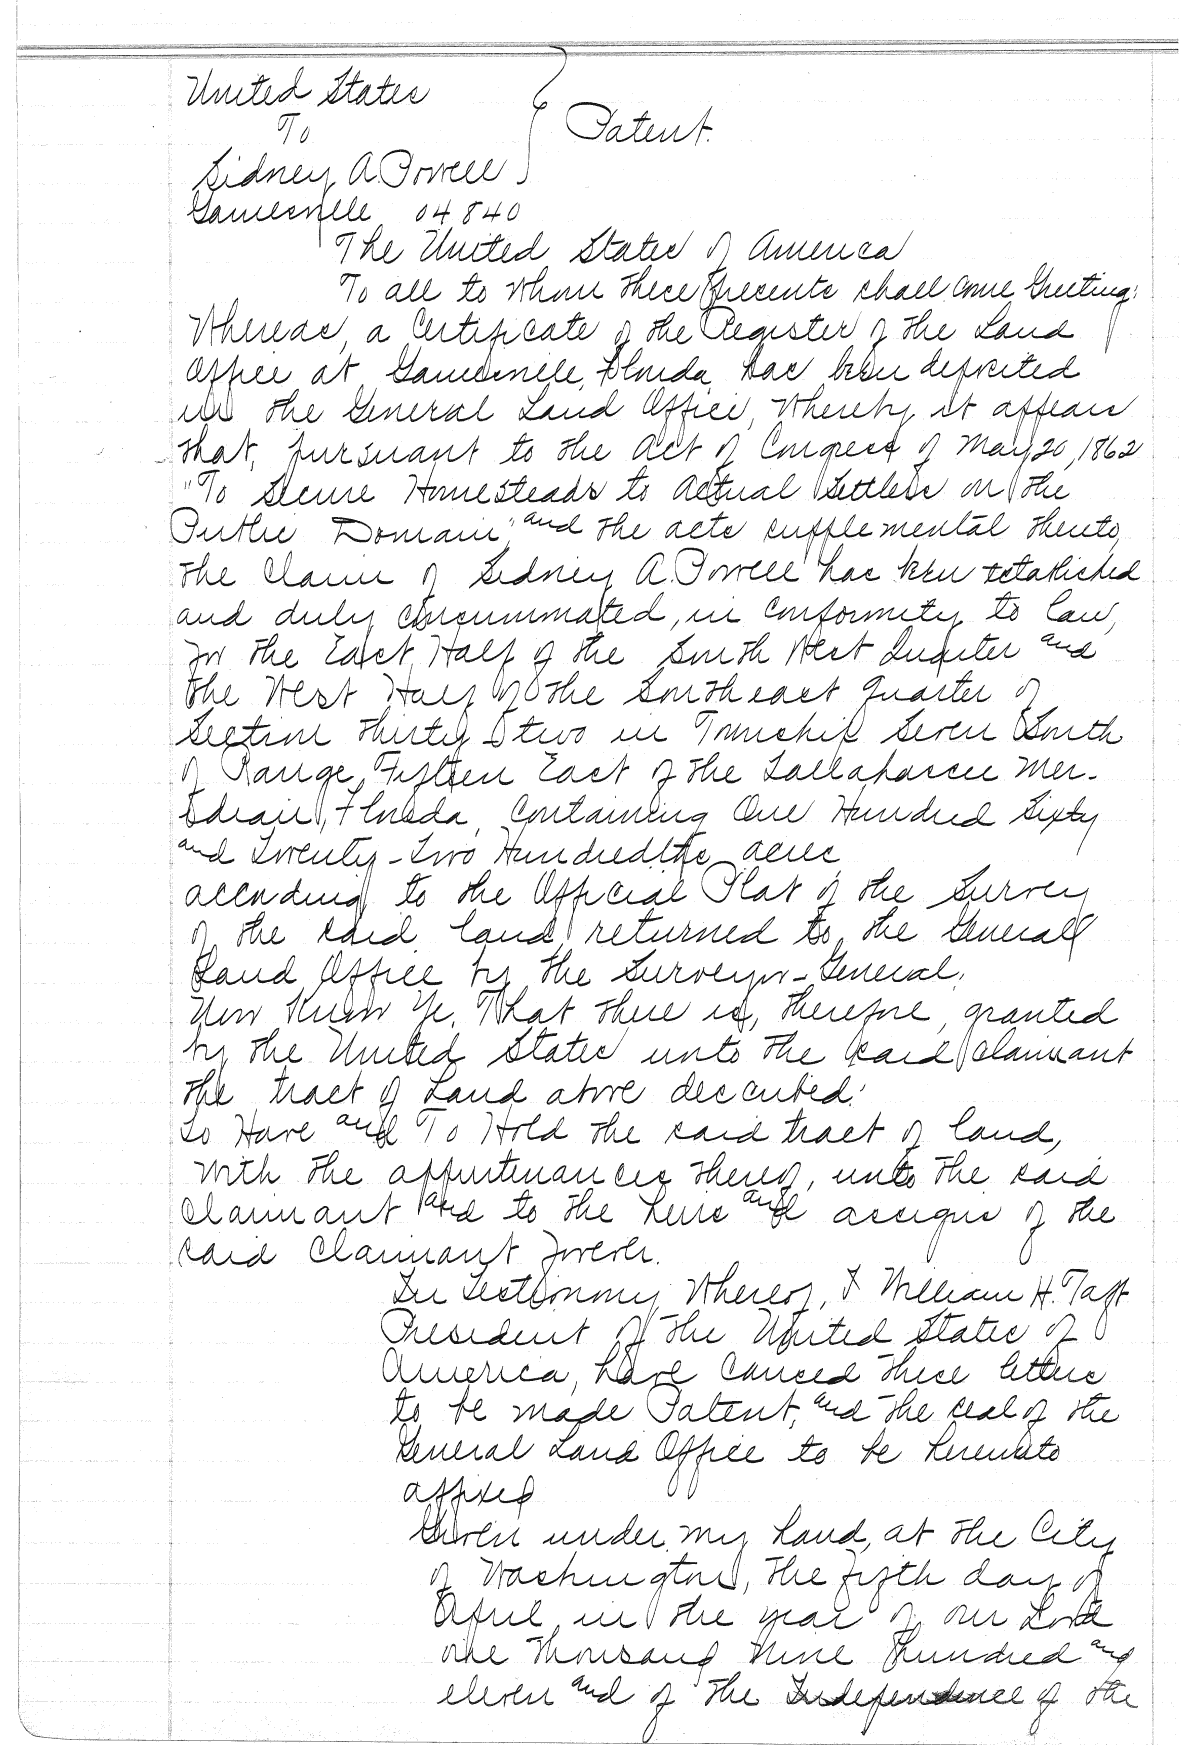 United States
To
Patent.
Sidney A. Powell
Gainesville 04840
The United States of America
To all to whom these presents shall come Greeting:
Whereas, a Certificate of the Register of the Land
Office at Gainesville, Florida, has been deposited
in the General Land Office, whereby it appears
that, pursuant to the Act of Congress of May 20, 1862
"To Secure Homesteads to Actual Settlers on the
Public Domain," and the acts supplemental thereto,
the claim of Sidney A. Powell has been established
and duly consummated, in conformity to law,
for the East Half of the South West Quarter and
the West Half of the Southeast quarter of
Section Thirty-two in Township Seven South
of Range Fifteen East of the Tallahassee Mer-
idian, Florida, containing One Hundred Sixty
and Twenty-Two Hundredths acres
according to the Official Plat of the Survey
of the said land returned to the General
Land Office by the Surveyor-General.
Now Know Ye, That there is, therefore, granted
by the United States unto the said claimant
the tract of Land above described:
To Have and To Hold the said tract of land,
with the appurtenances thereof, unto the said
claimant and to the heirs and assigns of the
said claimant forever.
In Testimony Whereof, I William H. Taft
President of the United States of
America, have caused these letters
to be made Patent, and the seal of the
General Land Office to be hereunto
affixed
Given under my hand, at the City
of Washington, the fifth day of
April in the year of our Lord
one thousand nine hundred and
eleven and of the Independence of the